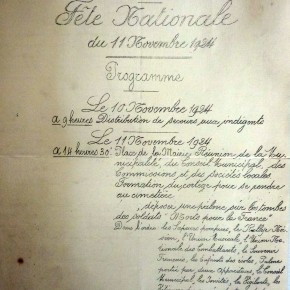 Fête Nationale
du 11 Novembre 1924
Programme
Le 10 Novembre 1924
à 9 heures Distribution de secours aux indigents
Le 11 Novembre 1924
à 14 heures 30. Place de la Mairie Réunion de la Mu-
nicipalité, du Conseil Municipal, des
Commissions et des sociétés locales
Formation du cortège pour se rendre
au cimetière
déposer une palme sur les tombes
des soldats "Morts pour la France"
Dans l'ordre les Sapeurs pompiers,
sion, l'Union Musicale, l'Union Na-
tionale des Combattants, le Souvenir
Français, les Enfants des écoles, Palme
portée par deux
Municipal, les Invités, la